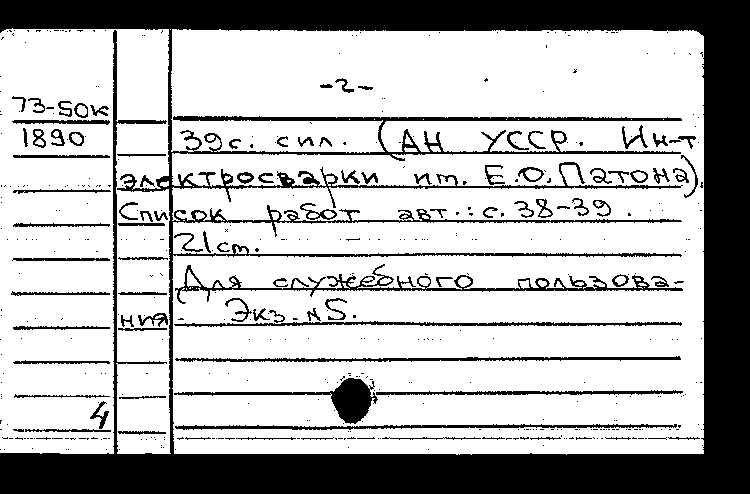 -2-
73-50к
1890
39с. сил. (АН УССР. Ин-т
электросварки им. Е.О.Патона).
Список работ авт.: с. 38-39.
21см.
Для служебного пользова-
ния. Экз. N5.
4